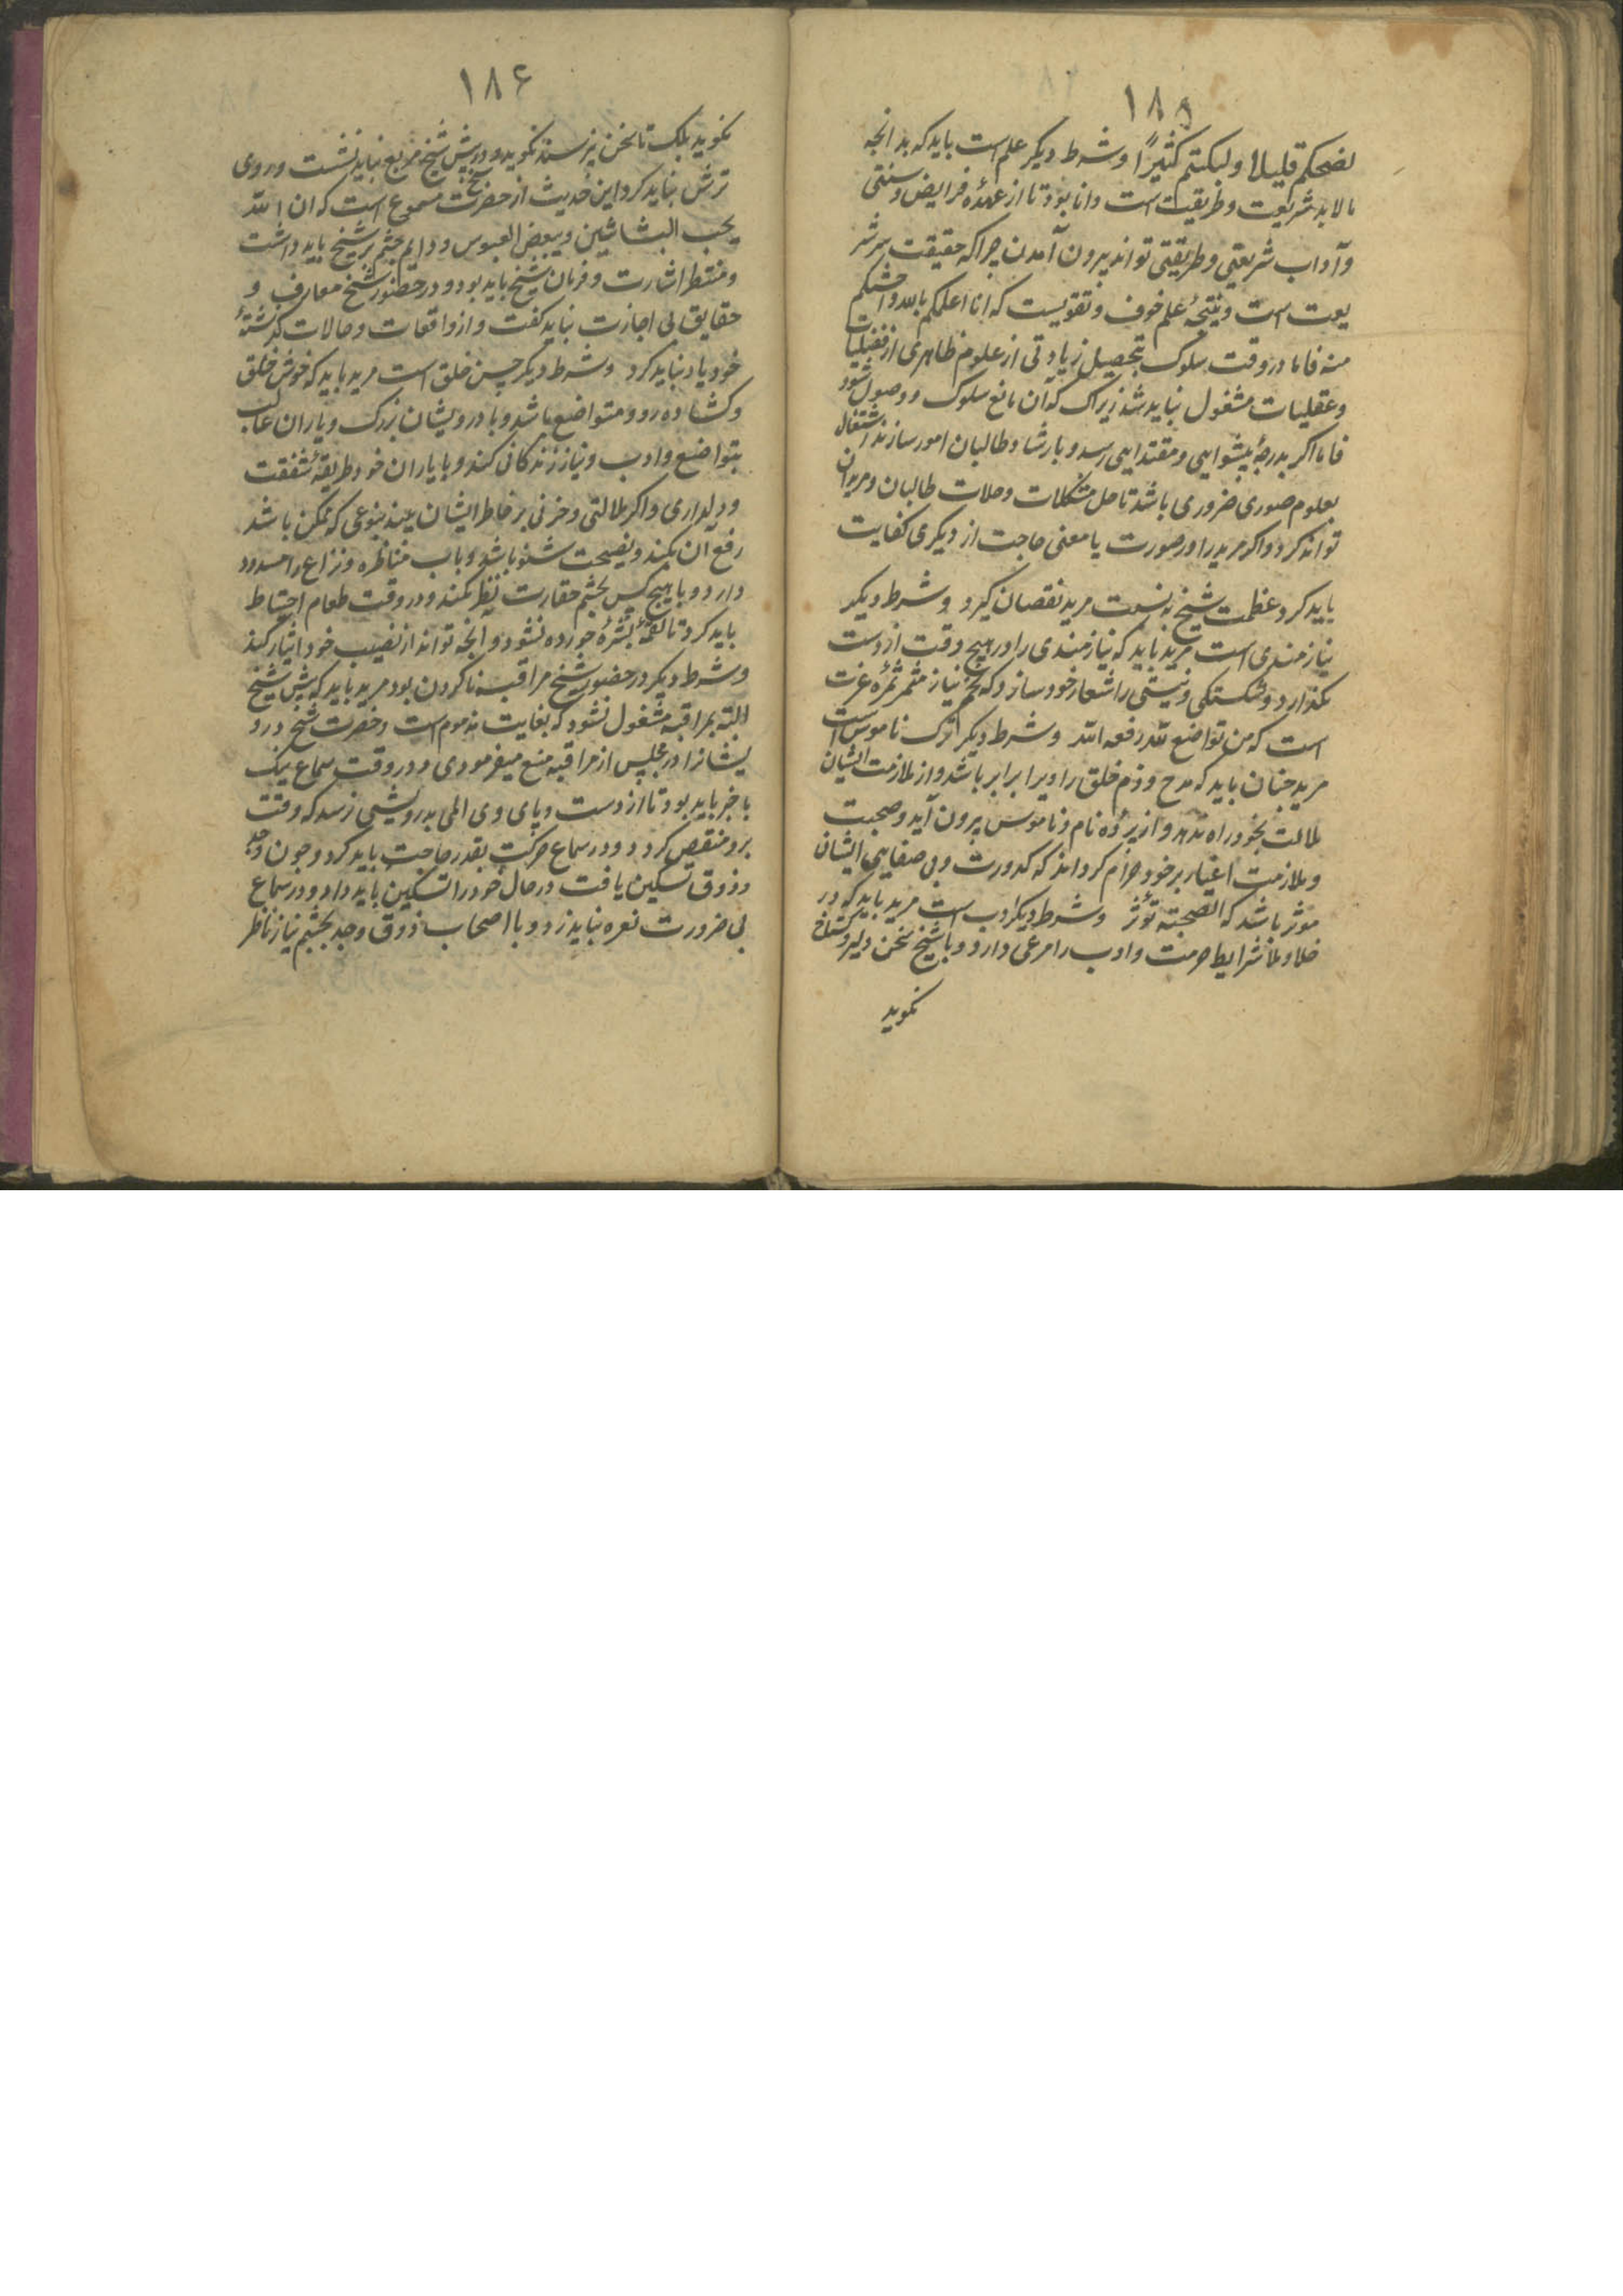 ۱۸۵
لضحکتم قلیلا ولبکتم کثیرًا وشرط دیکر علم است باید که بدانجه
مالابد شریعت وطریقیت است دانا بود تا از عهدهٔ فرایض وسنتی
وآداب شریعتی وطریقتی تواند بیرون آمدن جراکه حقیقت سر شر
یعت است ونتیجهٔ علم خوف وتقویست که انا اعلمکم بالله واخشیکم
منه فاما در وقت سلوک بتحصیل زیادتی از علوم ظاهری از نقلیات
وعقلیات مشغول نباید شد زیراک که آن مانع سلوک و وصول شود
فاما اکر بدرجهٔ پیشوایی ومقتدایی رسد و بارشاد طالبان امور سازند اشتغال
بعلوم صوری ضروری باشد تا حل مشکلات وحلات طالبان ومریدان
تواند کرد واکر مرید را در صورت یا معنی حاجت از دیکری کفایت
باید کرد عظمت شیخ به نسبت مرید نقصان کیرد وشرط دیکر
نیازمندی است مرید باید که نیازمندی را در هیچ وقت از دست
نکذارد وشکستکی ونیستی را شعار خود سازد که تخم نیاز مثمر ثمرهٔ عزت
است که من تواضع لله رفعه الله وشرط دیکر ترک ناموس است
مرید جنان باید که مدح وذم خلق را ویرا برابر باشد واز ملازمت ایشان
ملالت بخود راه ندهد واز پردهٔ نام وناموس بیرون آید وصحبت
وملازمت اغیار بر خود حرام کرداند که کدورت وبی صفایی ایشان
موثر باشد که الصحبته تؤثر وشرط دیکر ادب است مرید باید که در
خلا وملا شرایط حرمت وادب را مرعی دارد وبا شیخ سخن دلیر وکستاخ
نکوید
۱۸۶
نکوید بلک تا سخن نپرسند نکوید ودر پیش شیخ مربع نباید نشست وروی
ترش نباید کرد این حدیث از حضرت شیخ مسموع است که ان الله
یحب البشاشین ویبغض العبوس ودایم چشم بر شیخ باید داشت
ومنتظر اشارت وفرمان شیخ باید بود ودر حضور شیخ معارف و
حقایق بی اجازت نباید کفت واز واقعات وحالات کذشتهٔ
خود یاد نباید کرد وشرط دیکر حسن خلق است مرید باید که خوش خلق
وکشاده رو ومتواضع باشد وبا درویشان بزرک ویاران غالب
بتواضع وادب ونیاز زندکانی کند وبا یاران خود طریقهٔ شفقت
ودلداری واکر ملالتی وحزنی بر خاطر ایشان بیند بنوعی که ممکن باشد
رفع آن بکند ونصیحت شنو باشد وباب مناظره ونزاع را مسدود
دارد وبا هیچ کس بچشم حقارت نظر نکند ودر وقت طعام احتیاط
باید کرد تا لقمهٔ بشرهٔ خورده نشود وانجه تواند از نصیب خود ایثار کند
وشرط دیکر در حضور شیخ مراقبه ناکردن بود مرید باید که پیش شیخ
البته بمراقبه مشغول نشود که بغایت مذموم است وحضرت شیخ درو
یشانرا در مجلس از مراقبه منع میفرمودی ودر وقت سماع نیک
با خبر باید بود تا از دست وپای وی المی بدرویشی نرسد که وقت
برو منقص کردد ودر سماع حرکت بقدر حاجت باید کرد وجون وجد
وذوق تسکین یافت در حال خود را تسکین باید داد ودر سماع
بی ضرورت نعره نباید زد وبا اصحاب ذوق وجد بچشم نیاز ناظر